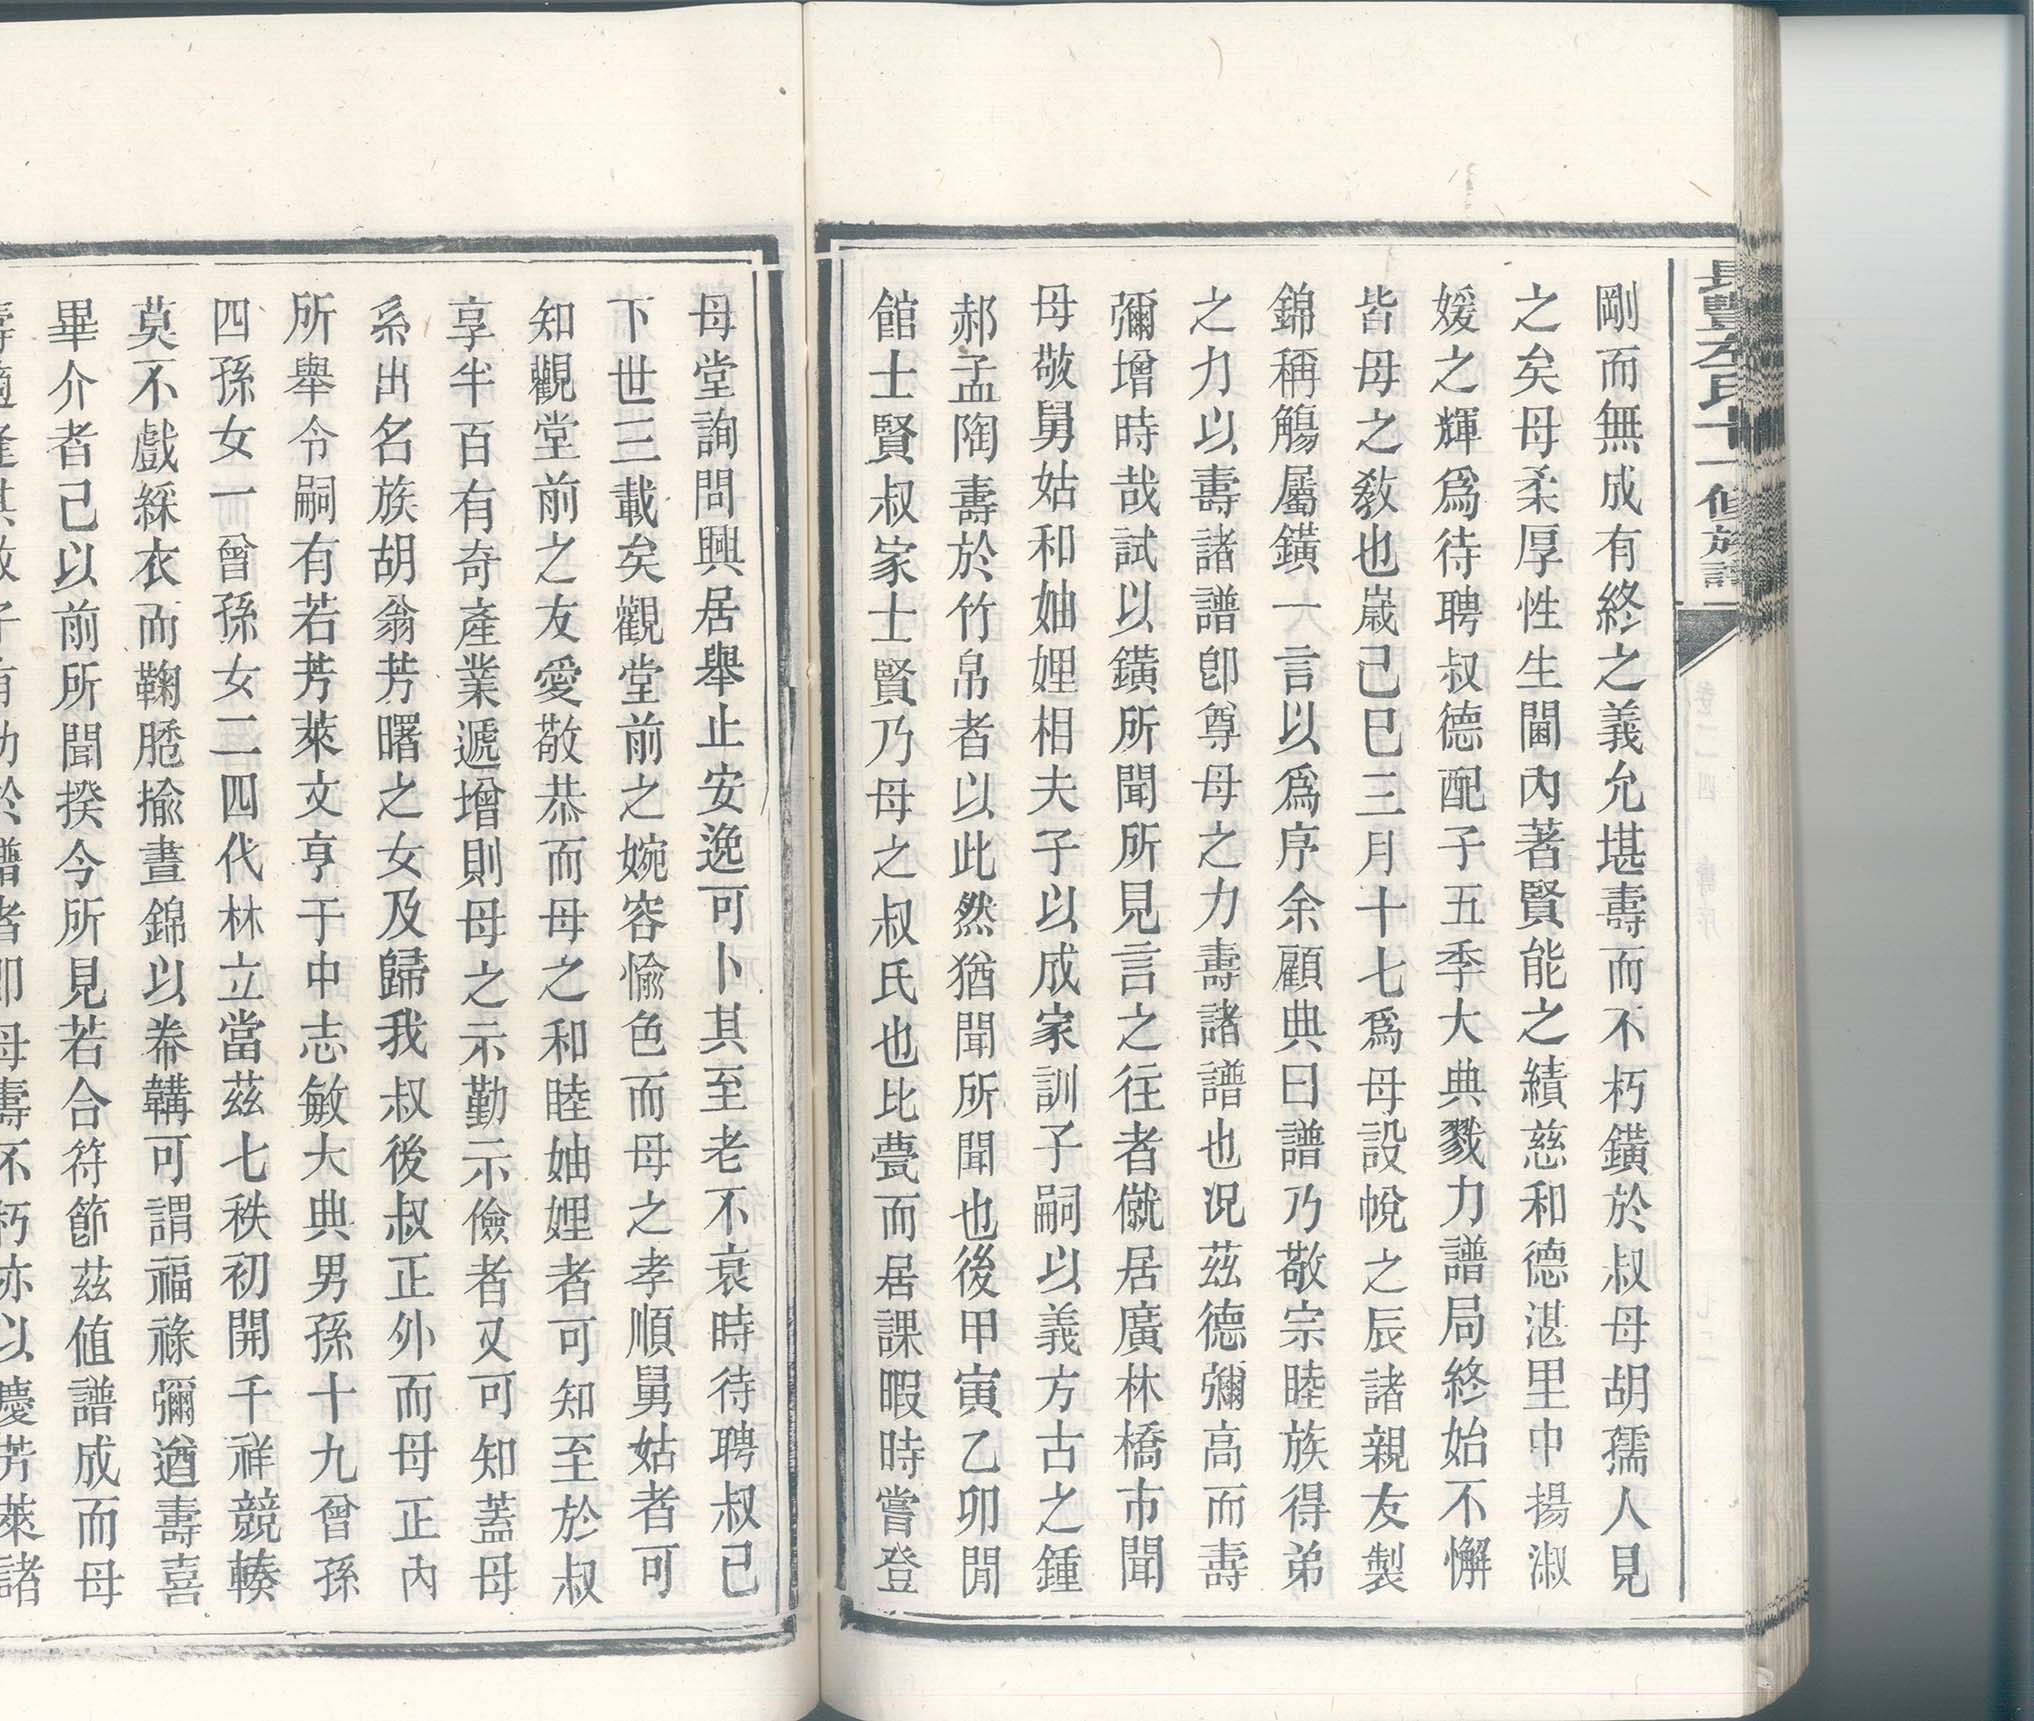 長豐左氏十一修族譜
卷二四 壽序
七二
剛而無成有終之義允堪壽而不朽鐄於叔母胡孺人見
之矣母柔厚性生閫內著賢能之績慈和德湛里中揚淑
媛之輝爲待聘叔德配子五季大典戮力譜局終始不懈
皆母之教也歲己巳三月十七爲母設帨之辰諸親友製
錦稱觴屬鐄一言以爲序余顧典曰譜乃敬宗睦族得弟
之力以壽諸譜卽尊母之力壽諸譜也況茲德彌高而壽
彌增時哉試以鐄所聞所見言之往者僦居廣林橋市聞
母敬舅姑和妯娌相夫子以成家訓子嗣以義方古之鍾
郝孟陶壽於竹帛者以此然猶聞所聞也後甲寅乙卯閒
館士賢叔家士賢乃母之叔氏也比甍而居課暇時嘗登
母堂詢問興居舉止安逸可卜其至老不衰時待聘叔已
下世三載矣觀堂前之婉容愉色而母之孝順舅姑者可
知觀堂前之友愛敬恭而母之和睦妯娌者可知至於叔
享半百有奇產業遞增則母之示勤示儉者又可知蓋母
系出名族胡翁芳曙之女及歸我叔後叔正外而母正內
所舉令嗣有若芳萊文亨于中志敏大典男孫十九曾孫
四孫女一而曾孫女二四代林立當茲七秩初開千祥競輳
莫不戲綵衣而鞠𦜕揄晝錦以帣韝可謂福祿彌遒壽喜
畢介者已以前所聞揆今所見若合符節茲值譜成而母
壽適逢其敬子有功於譜者卽母壽不朽亦以慶芳萊諸